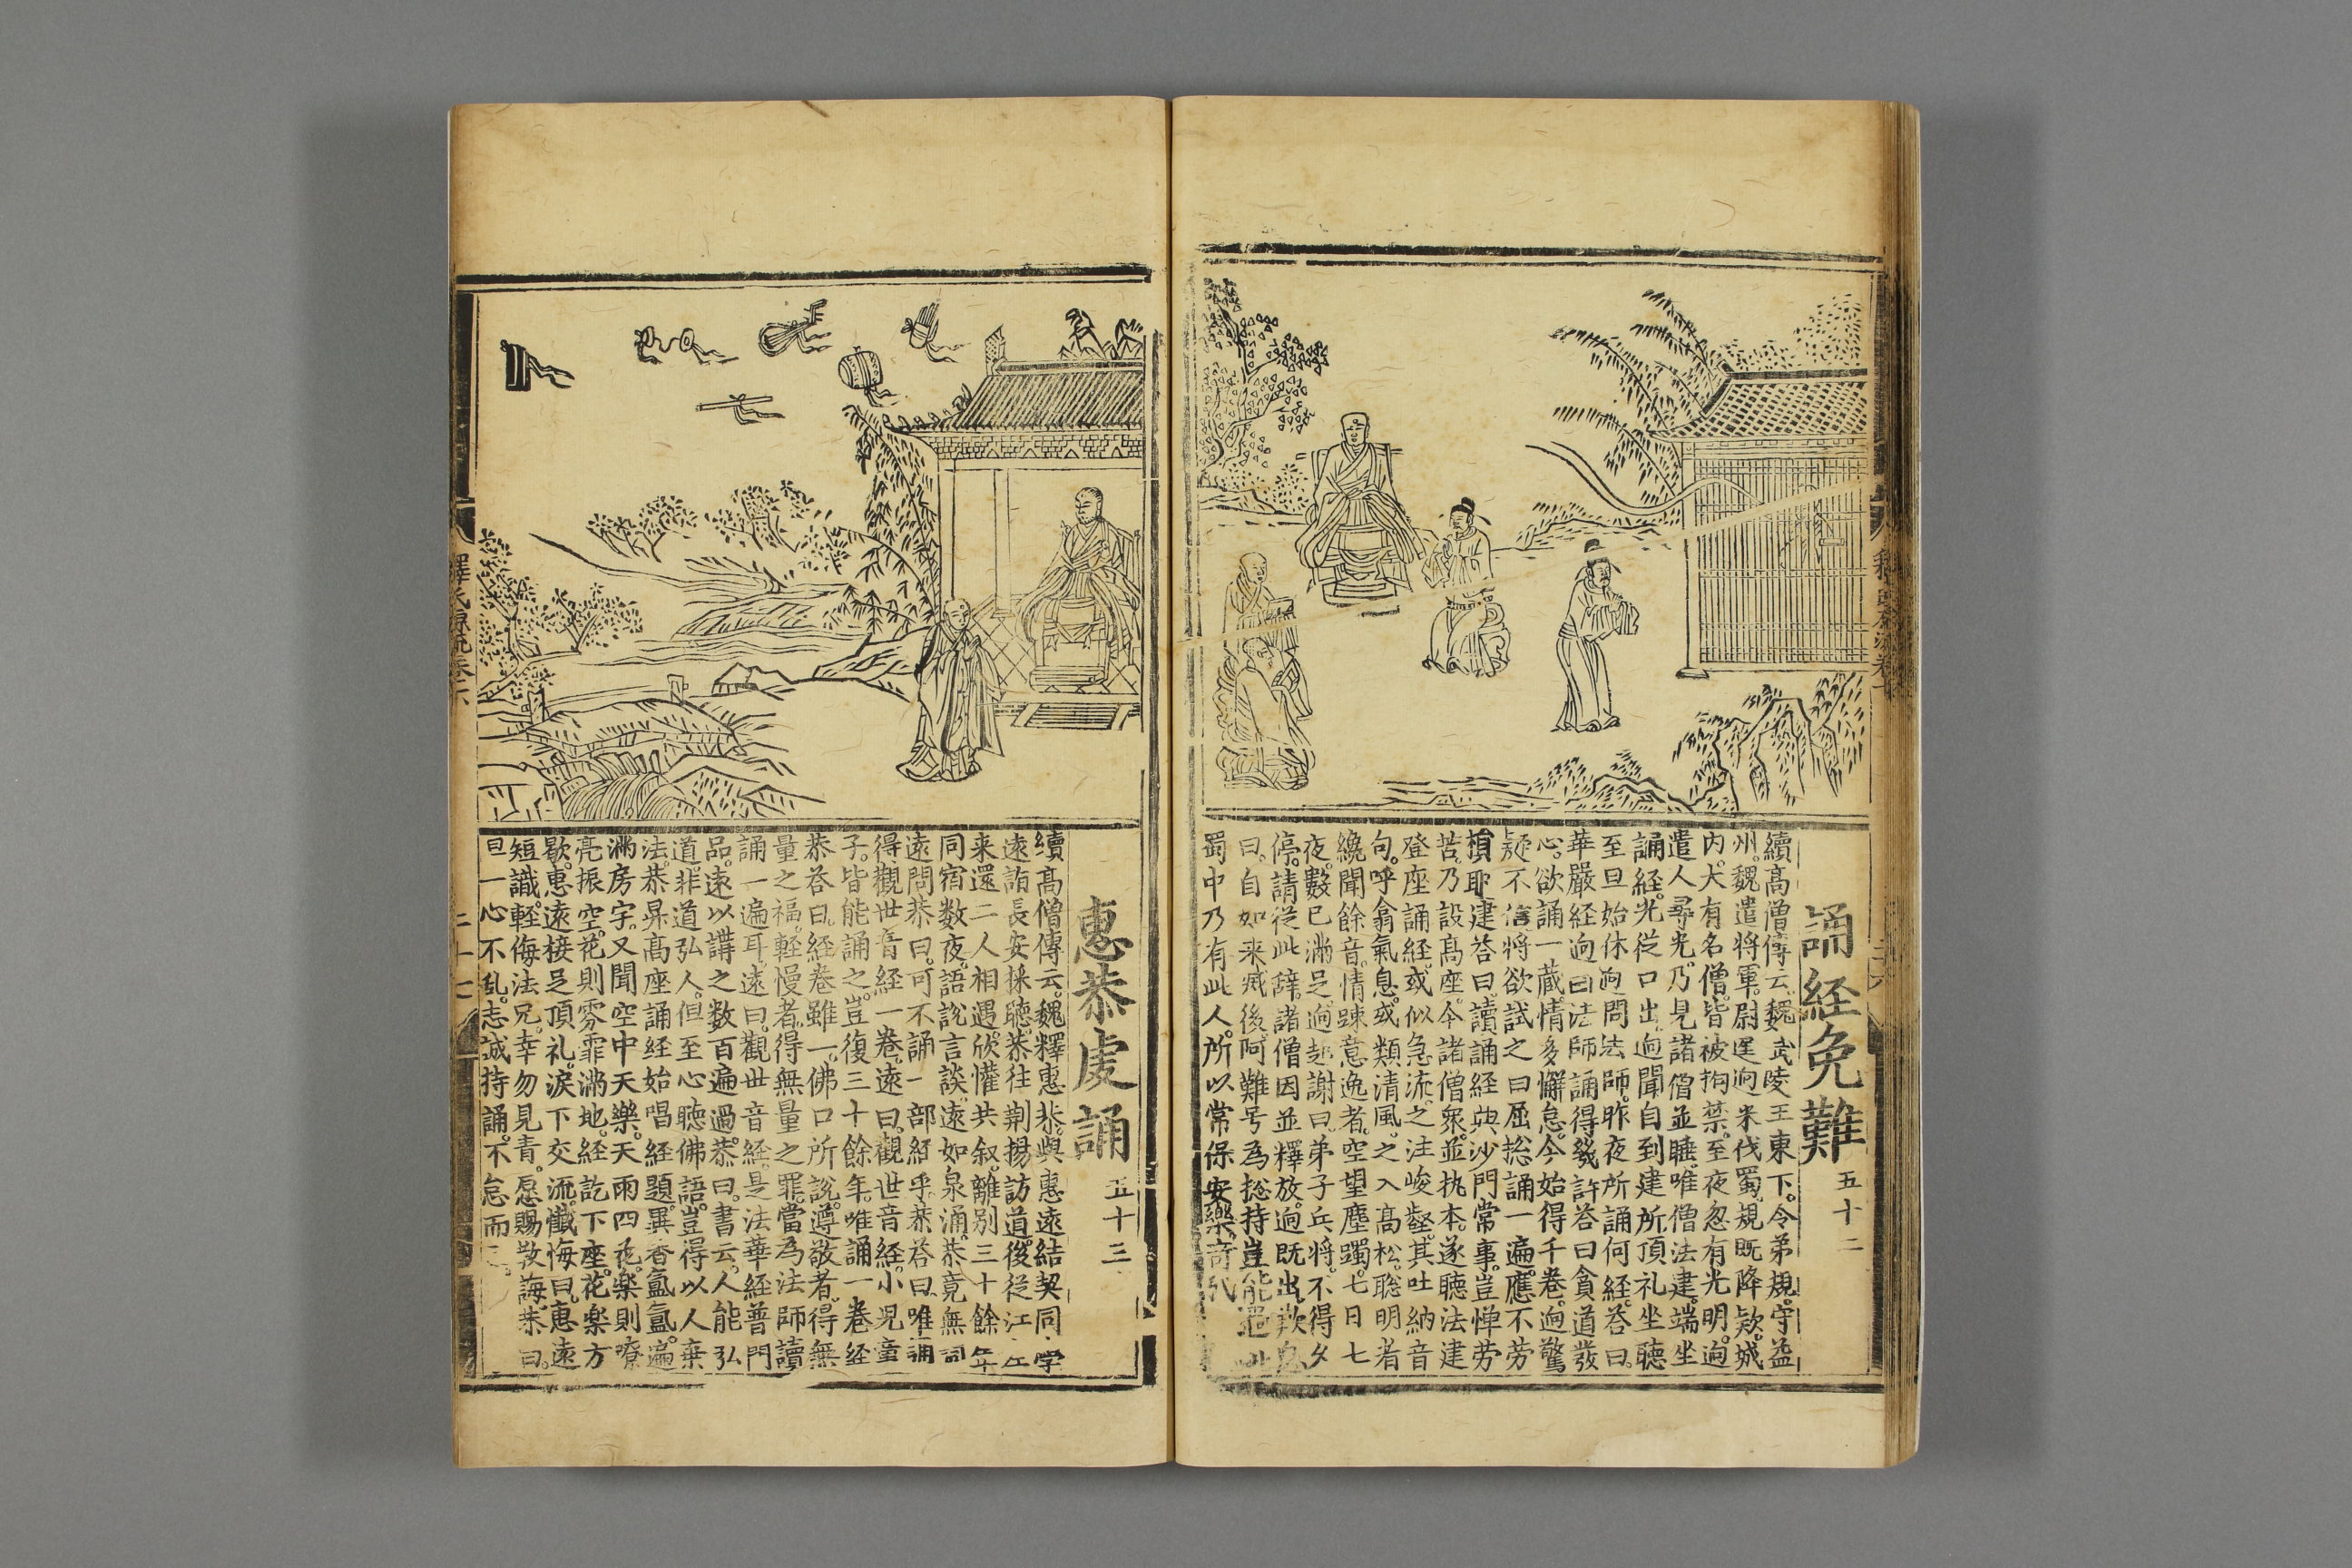 誦経免難 五十二
續高僧傳云魏武陵王東下令弟規守益
州魏遣將軍尉遲逈来伐蜀規既降欵城
内大有名僧皆被拘禁至夜忽有光明逈
遣人尋光乃見諸僧並睡唯僧法建端坐
誦経光従口出逈聞自到建所頂礼坐聴
至旦始休逈問法師昨夜所誦何経荅曰
華嚴経逈曰法師誦得幾許荅曰貪道發
心欲誦一蔵情多懈怠今始得千卷逈驚
疑不信將欲試之曰屈総誦一遍應不劳
損耶建荅曰讀誦経典沙門常事豈憚劳
苦乃設髙座令諸僧衆並执本遂聴法建
登座誦経或似急流之注峻壑其吐納音
句呼翕氣息或類清風之入髙松聡明者
纔聞餘音情踈意逸者空望塵躅七日七
夜數已滿足逈起謝曰弟子兵將不得久
停請従此辞諸僧因並釋放逈既出歎息
曰自如来滅後阿難号為総持豈能過此
蜀中乃有此人所以常保安樂
惠恭虔誦 五十三
續高僧傳云魏釋惠恭與惠遠結契同學
遠詣長安採聴恭往荆揚訪道後従江左
来還二人相遇欣懽共叙離别三十餘年
同宿数夜語說言談遠如泉涌恭竟無詞
遠問恭曰可不誦一部経乎恭荅曰唯誦
得觀世音経一卷遠曰觀世音経小児童
子皆能誦之豈復三十餘年唯誦一卷経
恭荅曰経卷雖一佛口所說遵敬者得無
量之福輕慢者得無量之罪當為法師讀
誦一遍耳遠曰觀世音経是法華経普門
品遠以講之数百遍過恭曰書云人能弘
道非道弘人但至心聴佛語豈得以人棄
法恭昇髙座誦経始唱経題異香氳氳遍
滿房宇又聞空中天樂天雨四花樂則嘹
亮振空花則雰霏滿地経訖下座花樂方
歇惠遠接足頂礼淚下交流懺悔曰惠遠
短識輕侮法兄幸勿見青愿賜教誨恭曰
旦一心不乱志誠持誦不怠而
釋氏源流卷六
二十七